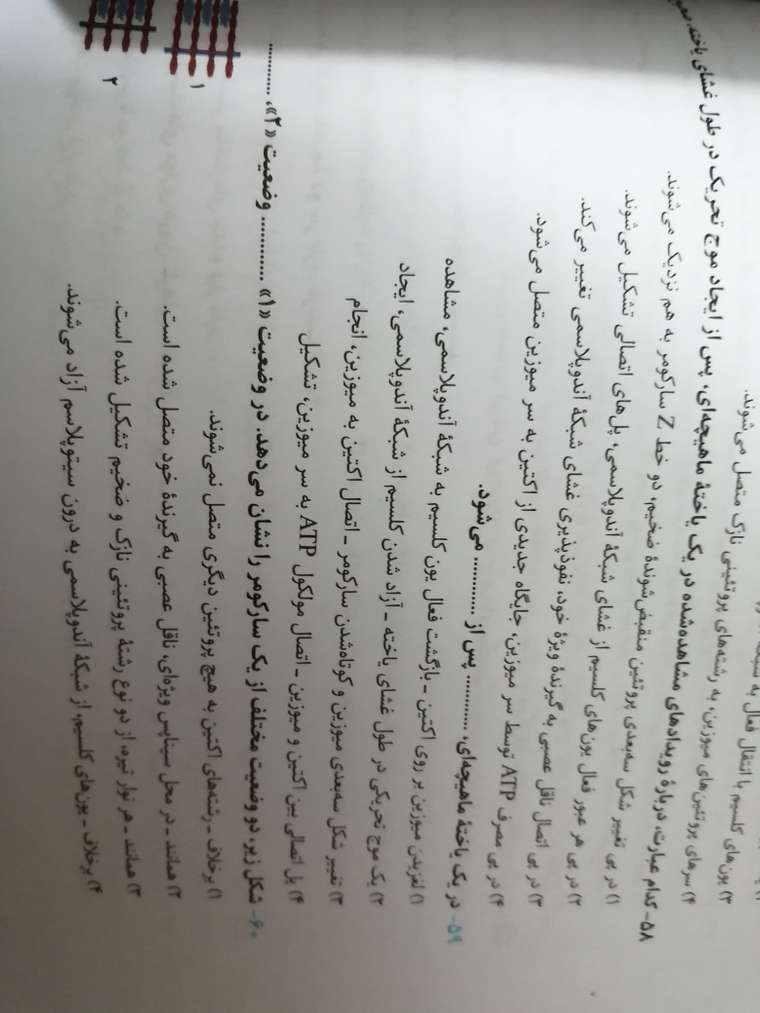 می‌شوند.
۳) یون‌های کلسیم با انتقال فعال به
۴) سرهای پروتئین‌های میوزین، به رشته‌های پروتئینی نازک متصل می‌شوند.
۵۸- کدام عبارت، دربارهٔ رویدادهای مشاهده‌شده در یک یاختهٔ ماهیچه‌ای، پس از ایجاد موج تحریک در طول غشای یاخته،
۱) در پی تغییر شکل سه‌بعدی پروتئین منقبض‌شوندهٔ ضخیم، دو خط Z سارکومر به هم نزدیک می‌شوند.
۲) در پی هر عبور فعال یون‌های کلسیم از غشای شبکهٔ آندوپلاسمی، پل‌های اتصالی تشکیل می‌شوند.
۳) در پی اتصال ناقل عصبی به گیرندهٔ ویژهٔ خود، نفوذپذیری غشای شبکهٔ آندوپلاسمی تغییر می‌کند.
۴) در پی مصرف ATP توسط سر میوزین، جایگاه جدیدی از اکتین به سر میوزین متصل می‌شود.
۵۹- در یک یاختهٔ ماهیچه‌ای، ............ پس از ............ می‌شود.
۱) لغزیدن میوزین بر روی اکتین ـ بازگشت فعال یون کلسیم به شبکهٔ آندوپلاسمی، مشاهده
۲) یک موج تحریکی در طول غشای یاخته ـ آزاد شدن کلسیم از شبکهٔ آندوپلاسمی، ایجاد
۳) تغییر شکل سه‌بعدی میوزین و کوتاه‌شدن سارکومر ـ اتصال اکتین به میوزین، انجام
۴) پل اتصالی بین اکتین و میوزین ـ اتصال مولکول ATP به سر میوزین، تشکیل
۶۰- شکل زیر، دو وضعیت مختلف از یک سارکومر را نشان می‌دهد. در وضعیت «۱» ............ وضعیت «۲»، ............
۱) برخلاف ـ رشته‌های اکتین به هیچ پروتئین دیگری متصل نمی‌شوند.
۲) همانند ـ در محل سیناپس ویژه‌ای، ناقل عصبی به گیرندهٔ خود متصل شده است.
۳) همانند ـ هر نوار تیره، از دو نوع رشتهٔ پروتئینی نازک و ضخیم تشکیل شده است.
۴) برخلاف ـ یون‌های کلسیم، از شبکهٔ آندوپلاسمی به درون سیتوپلاسم آزاد می‌شوند.
۱
۲